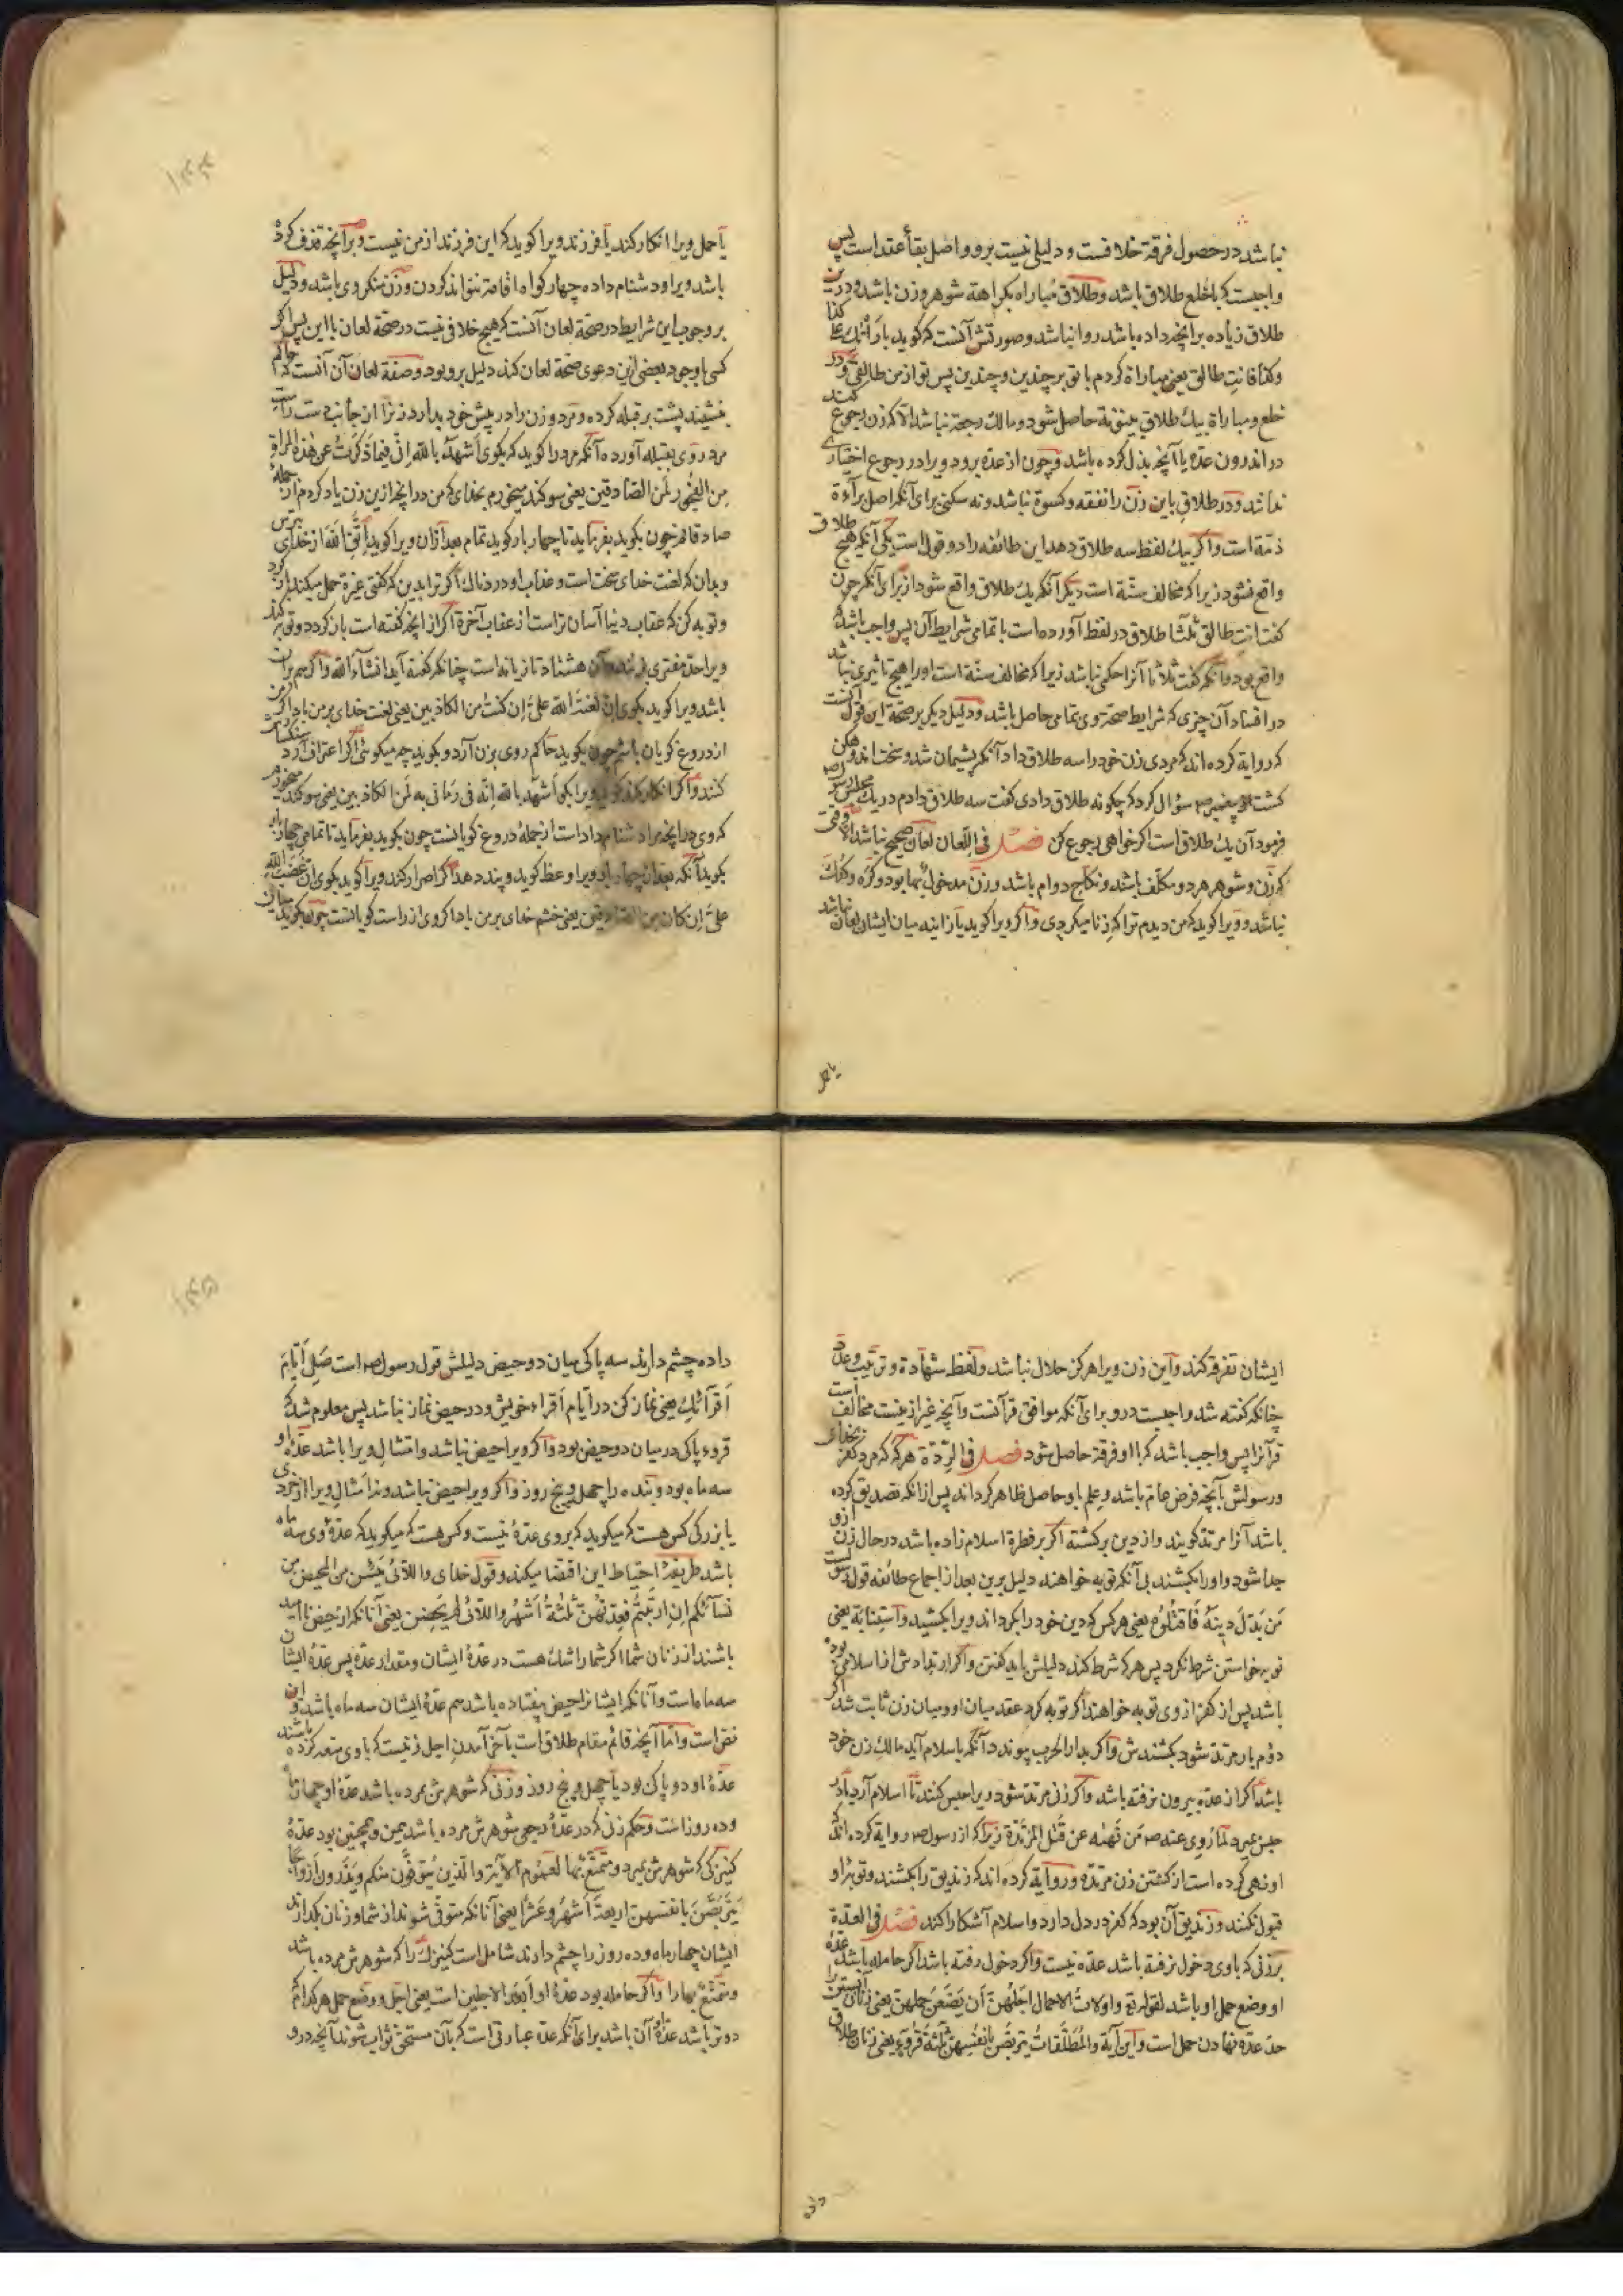 نباشد در حصول فرقة خلافست و دلیلی نیست برو و اصل بقأ عقد است پس
واجبست که با خلع طلاق باشد و طلاق مباراه بکراهة شوهر و زن باشد و درین
طلاق زیاده بر انچه داده باشد روا نباشد و صورتش آنست که گوید بارأتك علی کذا
وکذا فانتِ طالق یعنی مباراة کردم با تو بر چندین و چندین پس تو از من طالقی و در
خلع و مباراة بیك طلاق بینونة حاصل شود و مالك رجعة نباشد الا که زن رجوع کند
در اندرون عدّه یا آنچه بذل کرده باشد و چون از عدّه برود ویرا در رجوع اختیاری
نباشد و در طلاق باین زن را نفقه و کسوة نباشد و نه سکنی برای آنکه اصل برآءة
ذمّة است و اگر بیك لفظ سه طلاق دهد این طائفه را دو قول است یکی آنکه هیچ طلاق
واقع نشود زیرا که مخالف سنّة است دیگر آنکه یك طلاق واقع شود از برای آنکه چون
گفت انتِ طالق ثلثا طلاق در لفظ آورده است با تمامی شرایط آن پس واجب باشد که
واقع بود و آنکه گفت ثلاثا آنرا حکمی نباشد زیرا که مخالف سنّة است اورا هیچ تاثیری نباشد
در افساد آن چیزی که شرایط صحة وی تمامی حاصل باشد و دلیل دیگر بر صحة این قول آنست
که روایة کرده اند که مردی زن خود را سه طلاق داد آنگه پشیمان شد و سخت اندوهگن
گشت پیغمبر ص سؤال کرد که چگونه طلاق دادی گفت سه طلاق دادم در یك مجلس
فرمود آن یك طلاق است اگر خواهی رجوع کن فصل فی اللّعان لعان صحیح نباشد الا وقتی
که زن و شوهر هر دو مکلّف باشند و نکاح دوام باشد و زن مدخول بها بود و کرّه و گنگ
نباشد و ویرا گوید که من دیدم ترا که زنا میکردی و اگر ویرا گوید یا زانیه میان ایشان لعان نباشد
یا حمل
یا حمل ویرا انکار کند یا فرزند ویرا گوید که این فرزند از من نیست و بر آنچه قذف کرده
باشد ویرا و دشنام داده چهار گواه اقامة نتواند کردن و زن منکر وی باشد و دلیل
بر وجوب این شرایط در صحّة لعان آنست که هیچ خلافی نیست در صحّة لعان با این پس اگر
کسی با وجود بعضی ازین دعوی صحّة لعان کند دلیل برو بود و صفة لعان آن آنست که حاکم
بنشیند پشت بر قبله کرده و مرد و زن را در پیش خود بدارد زنرا از جانب دست راست
مرد روی بقبله آورده آنگه مرد را گوید که بگوی أشهد بالله إنّی فیما ذکرتُ عن هذه المرأة
من الفجور لمن الصّادقین یعنی سوگند میخورم بخدای که من در انچه ازین زن یاد کردم از جملهٔ
صادقانم چون بگوید بفرماید تا چهار بار گوید تمام بعد ازان ویرا گوید إتّق الله از خدای بترس
و بدان که لعنت خدای سخت است و عذاب او دردناك اگر ترا بدین که گفتی غیرة حمل میکند باز گرد
و توبه کن که عقاب دنیا آسان تر است از عقاب آخرة اگر از انچه گفته است باز گردد و توبه کند
ویرا حدّ مفتری بزنند و آن هشتاد تازیانه است چنانکه گفته آید انشآء الله و اگر هم بران
باشد ویرا گوید بگوی إن لعنة الله علیّ إن کنتُ من الکاذبین یعنی لعنت خدای بر من باد اگر من
از دروغ گویان باشم چون بگوید حاکم روی بزن آرد و بگوید چه میگوئی اگر اعتراف آرد سنگسارش
کنند و اگر انکار کند گوید ویرا بگو أشهد بالله إنّه فی رمانی به لمن الکاذبین یعنی سوگند میخورم
که وی در انچه مرا دشنام داد است از جملهٔ دروغ گویانست چون بگوید بفرماید تا تمامی چهار بار
بگوید آنگه بعد از چهار بار ویرا وعظ گوید و پند دهد اگر اصرار کند ویرا گوید بگوی ان غضب الله
علیّ إن کان من الصّادقین یعنی خشم خدای بر من باد اگر وی از راست گویانست چون بگوید میان
ایشان تفرقه کند و این زن ویرا هرگز حلال نباشد و لفظ شهادة و ترتیب و عدد
چنانکه گفته شد واجبست درو برای آنکه موافق قرآنست و آنچه غیر ازینست مخالف است
قرآنرا پس واجب باشد که با او فرقة حاصل شود فصل فی الرّدّة هرگه که مرد کفر
و رسولش بآنچه فرض عام باشد و علم باو حاصل ظاهر کرداند پس از انکه تصدیق کرده
باشد آنرا مرتدّ گویند و از دین برگشته اگر بر فطرة اسلام زاده باشد در حال زن ازو
جدا شود و اورا بکشند بی آنکه توبه خواهند دلیل برین بعد از اجماع طائفه قول
مَن بَدّلَ دِینَهُ فَاقتُلُوهُ یعنی هر کس که دین خود را بگرداند ویرا بکشید و استتابة یعنی
توبه خواستن شرط نکرد پس هر که شرط کند دلیلش باید گفتن و اگر ارتدادش از اسلامی بود که
باشد پس از کفر از وی توبه خواهند اگر توبه کرد عقد میان او و میان زن ثابت شد اگر
دوم بار مرتدّ شود بکشندش و اگر بدار الحرب پیوندد آنگه باسلام آید مالك زن خود
باشد اگر از عدّه بیرون نرفته باشد و اگر زنی مرتدّ شود ویرا حبس کنند تا اسلام آرد یا در
حبس بمیرد لما رُوی عنه ص مَن نَهیه عن قتل المرتدّة زیرا که از رسول ص روایة کرده اند که
او نهی کرده است از کشتن زن مرتدّه و روایة کرده اند که زندیق را بکشند و توبهٔ او
قبول نکنند و زندیق آن بود که کفر در دل دارد و اسلام آشکارا کند فصل فی العدّة
بر زنی که با وی دخول نرفته باشد عدّه نیست و اگر دخول رفته باشد اگر حامله باشد عدّه
او وضع حمل او باشد لقوله تع و اولاتُ الاحمال اجلهنّ أن یضعن حملهنّ یعنی زنان آبستن را
حدّ عدّه نهادن حمل است و این آیة والمُطلّقاتُ یتربّصن بانفسهنّ ثلثة قُروء یعنی زنان طلاق
داده
داده چشم دارند سه پاکی میان دو حیض دلیلش قول رسول ص است صَلّی أیّامَ
أقرآئكِ یعنی نماز کن در ایّام أقراء خویش و در حیض نماز نباشد پس معلوم شد که
قروء پاکی در میان دو حیض بود و اگر ویرا حیض نباشد و امثال ویرا باشد عدّهٔ او
سه ماه بود و بنده را چهل و پنج روز و اگر ویرا حیض نباشد و نه امثال ویرا از خردی
یا بزرگی کس هست که میگوید که بروی عدّهٔ نیست و کس هست که میگوید که عدّهٔ وی سه ماه
باشد طریقهٔ احتیاط این اقتضا میکند و قول خدای واللآئی یئسن من المحیض من
نسآئکم إن ارتبتم فعدّتهنّ ثلثة أشهر واللآئی لم یحضن یعنی آنانکه از حیض ناامید
باشند از زنان شما اگر شما را شك هست در عدّهٔ ایشان و مقدار عدّه پس عدّهٔ ایشان
سه ماه است و آنانکه ایشانرا حیض نیفتاده باشد هم عدّهٔ ایشان سه ماه باشد و این
نص است و امّا آنچه قائم مقام طلاق است بآخر آمدن اجل زنیست که با وی متعه کرده باشند
عدّهٔ او دو پاکی بود یا چهل و پنج روز و زنی که شوهرش مرده باشد عدّهٔ او چهار ماه
و ده روز است و حکم زنی که در عدّهٔ رجعی شوهرش مرده باشد همین و همچنین بود عدّهٔ
کنیزکی که شوهرش بمیرد و متمتّع بها لعموم الآیة والّذین یُتَوَفّون منکم ویذرون أزواجا
یتربّصن بانفسهنّ اربعة أشهر وعشرا یعنی آنانکه متوفّی شوند از شما و زنان بگذارند
ایشان چهار ماه و ده روز را چشم دارند شامل است کنیزك را که شوهرش مرده باشد
و متمتّع بها را و اگر حامله بود عدّهٔ او أبعد الاجلین است یعنی اجل و وضع حمل هر کدام که
دورتر باشد عدّهٔ آن باشد برای آنکه عدّه عبارتی است که بآن مستحق ثواب شوند آنچه درو